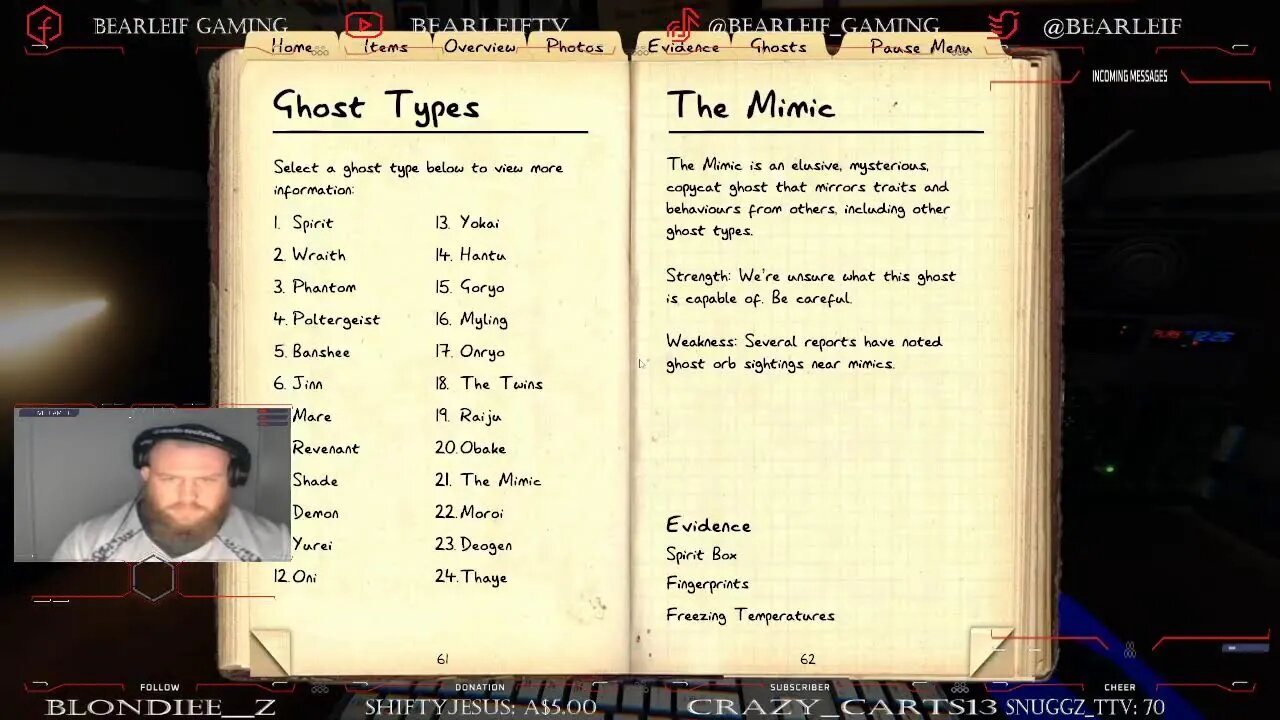 BEARLEIF GAMING
BEARLEIFTV
@BEARLEIF_GAMING
@BEARLEIF
Home
Items
Overview
Photos
Evidence
Ghosts
Pause Menu
INCOMING MESSAGES
Ghost Types
Select a ghost type below to view more
information:
1. Spirit
2. Wraith
3. Phantom
4. Poltergeist
5. Banshee
6. Jinn
Mare
Revenant
Shade
Demon
Yurei
12. Oni
13. Yokai
14. Hantu
15. Goryo
16. Myling
17. Onryo
18. The Twins
19. Raiju
20. Obake
21. The Mimic
22. Moroi
23. Deogen
24. Thaye
61
The Mimic
The Mimic is an elusive, mysterious,
copycat ghost that mirrors traits and
behaviours from others, including other
ghost types.
Strength: We're unsure what this ghost
is capable of. Be careful.
Weakness: Several reports have noted
ghost orb sightings near mimics.
Evidence
Spirit Box
Fingerprints
Freezing Temperatures
62
FOLLOW
BLONDIEE__Z
DONATION
SHIFTYJESUS: A$5.00
SUBSCRIBER
CRAZY_CARTS13
CHEER
SNUGGZ_TTV: 70